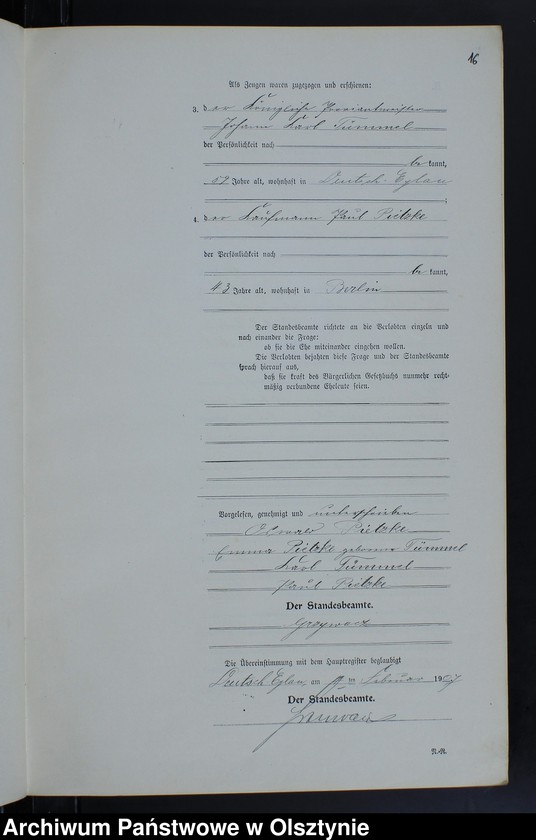 16
Als Zeugen waren zugezogen und erschienen:
3. der Königliche Proviantmeister
Johann Karl Tümmel
der Persönlichkeit nach
be kannt,
52 Jahre alt, wohnhaft in Deutsch-Eylau
;
4. der Kaufmann Paul Pietzke
der Persönlichkeit nach
be kannt,
43 Jahre alt, wohnhaft in Berlin
Der Standesbeamte richtete an die Verlobten einzeln und
nach einander die Frage:
ob sie die Ehe miteinander eingehen wollen.
Die Verlobten bejahten diese Frage und der Standesbeamte
sprach hierauf aus,
daß sie kraft des Bürgerlichen Gesetzbuchs nunmehr recht-
mäßig verbundene Eheleute seien.
Vorgelesen, genehmigt und unterschrieben
Pietzke
Emma Pietzke geborene Tümmel
Karl Tümmel
Paul Pietzke
Der Standesbeamte.
Die Übereinstimmung mit dem Hauptregister beglaubigt
Deutsch Eylau, am 9 ten Februar 1907
Der Standesbeamte.
N.-R.
Archiwum Państwowe w Olsztynie